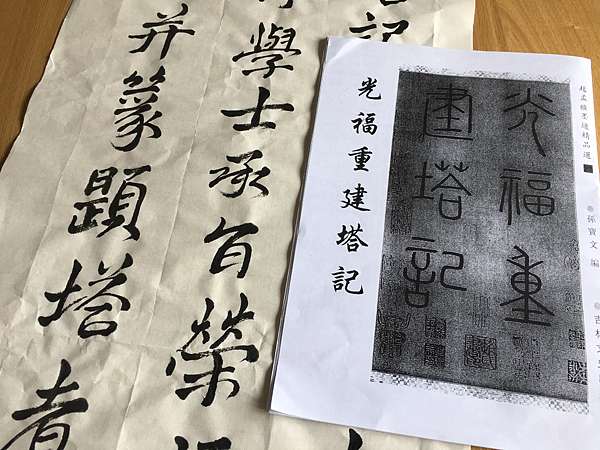 趙孟頫墨迹精品選
孫寶文 編
吉林文史
光福重
建塔記
光福重建塔記
記
學士承旨榮
并篆題塔者